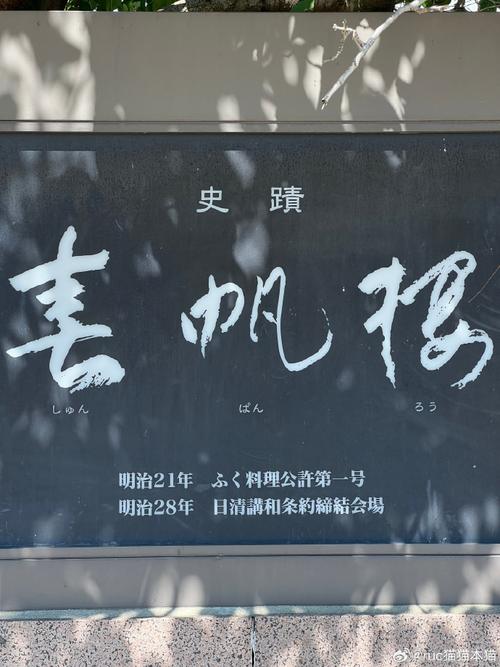 史蹟
春帆楼
しゅん ぱん ろう
明治21年 ふく料理公許第一号
明治28年 日清講和条約締結会場
@ruc猫猫本猫